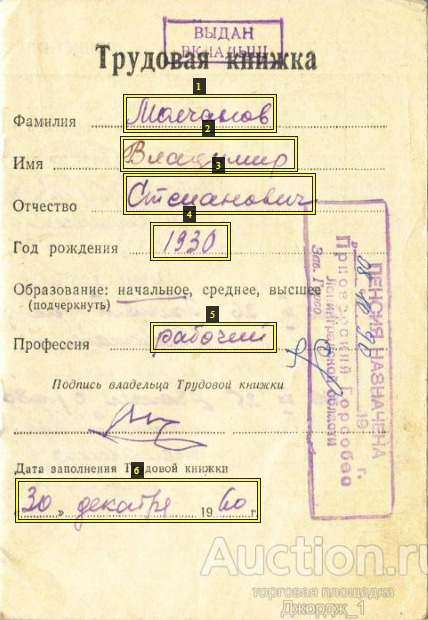 ВЫДАН
ВКЛАДЫШ
Трудовая книжка
Фамилия Молчанов
Имя Владимир
Отчество Степанович
Год рождения 1930
Образование: начальное, среднее, высшее
(подчеркнуть)
Профессия рабочий
Подпись владельца Трудовой книжки
Дата заполнения Трудовой книжки
«30» декабря 1960 г.
ПЕНСИЯ НАЗНАЧЕНА
19 г.
Приозерский Горсобес
Ленинградской области
Зав. Горсо
1
2
3
4
5
6
Auction.ru
торговая площадка
Джордж_1